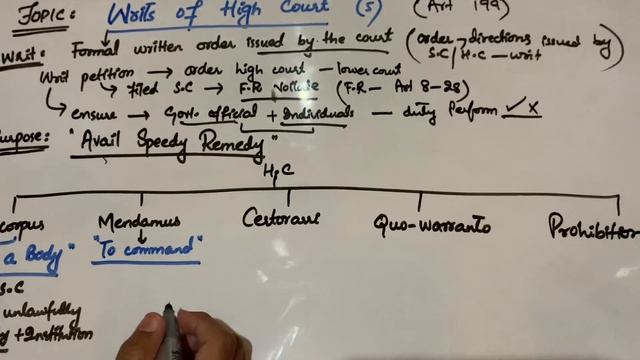 TOPIC: Writs of High Court (s) (Art 199)
Writ: Formal written order issued by the court (order-directions issued by S.C/H.C - writ)
Writ petition → order high court - lower court
→ filed S.C → F.R voilate (F.R - Art 8-28)
→ ensure → Govt. official + Individuals - duty Perform ✓✗
Purpose: "Avail Speedy Remedy"
H.C
corpus Mendamus Cestorarie Quo-warranto Prohibition
a Body" "To command"
S.C
unlawfully
+ Institution